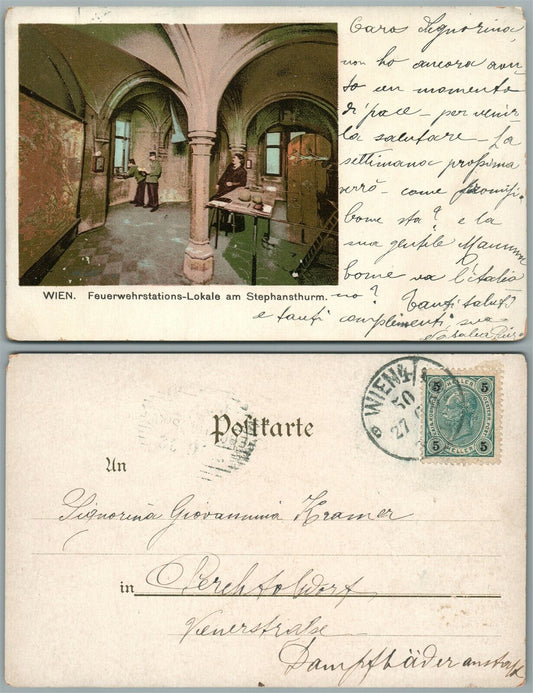 Cara Signorina,
non ho ancora avu
to un momento
di pace – per venir
la salutare – La
settimana prossima
verrò – come
Come sta? e la
sua gentile Mamma
Come va l'Italia
no? Tanti saluti
e tanti complimenti sua
WIEN. Feuerwehrstations-Lokale am Stephansthurm.
WIEN 4/1
50
27
5 5
HELLER
5 5
Postkarte
An
Signorina Giovannina Kramer
in Perchtoldsdorf
Vienerstrasse
Dampfbäderanstalt